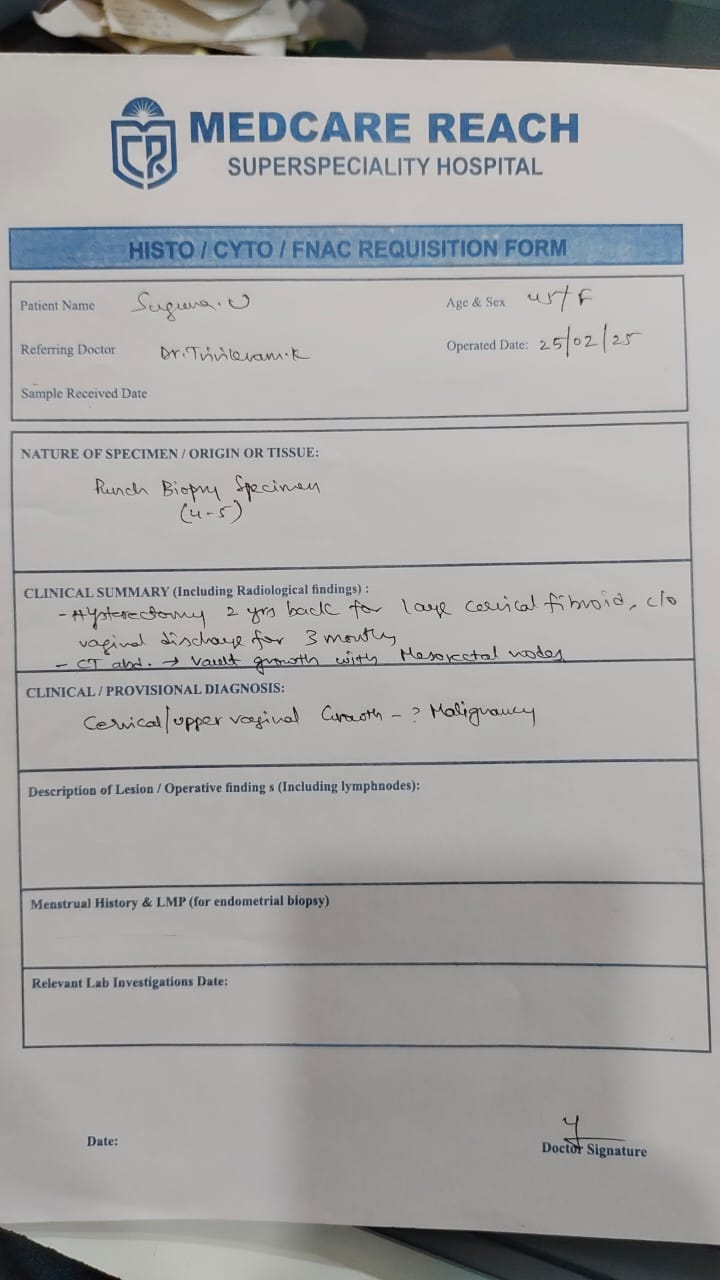 CR
MEDCARE REACH
SUPERSPECIALITY HOSPITAL
HISTO / CYTO / FNAC REQUISITION FORM
Patient Name Suguna. U Age & Sex 45/F
Referring Doctor Dr. K Operated Date: 25/02/25
Sample Received Date
NATURE OF SPECIMEN / ORIGIN OR TISSUE:
Punch Biopsy Specimen
(4-5)
CLINICAL SUMMARY (Including Radiological findings) :
- Hysterectomy 2 yrs back for large cervical fibroid, c/o
vaginal discharge for 3 months
- CT abd. → Vault growth with Mesorectal nodes
CLINICAL / PROVISIONAL DIAGNOSIS:
Cervical/upper vaginal Growth - ? Malignancy
Description of Lesion / Operative finding s (Including lymphnodes):
Menstrual History & LMP (for endometrial biopsy)
Relevant Lab Investigations Date:
Date:
Doctor Signature